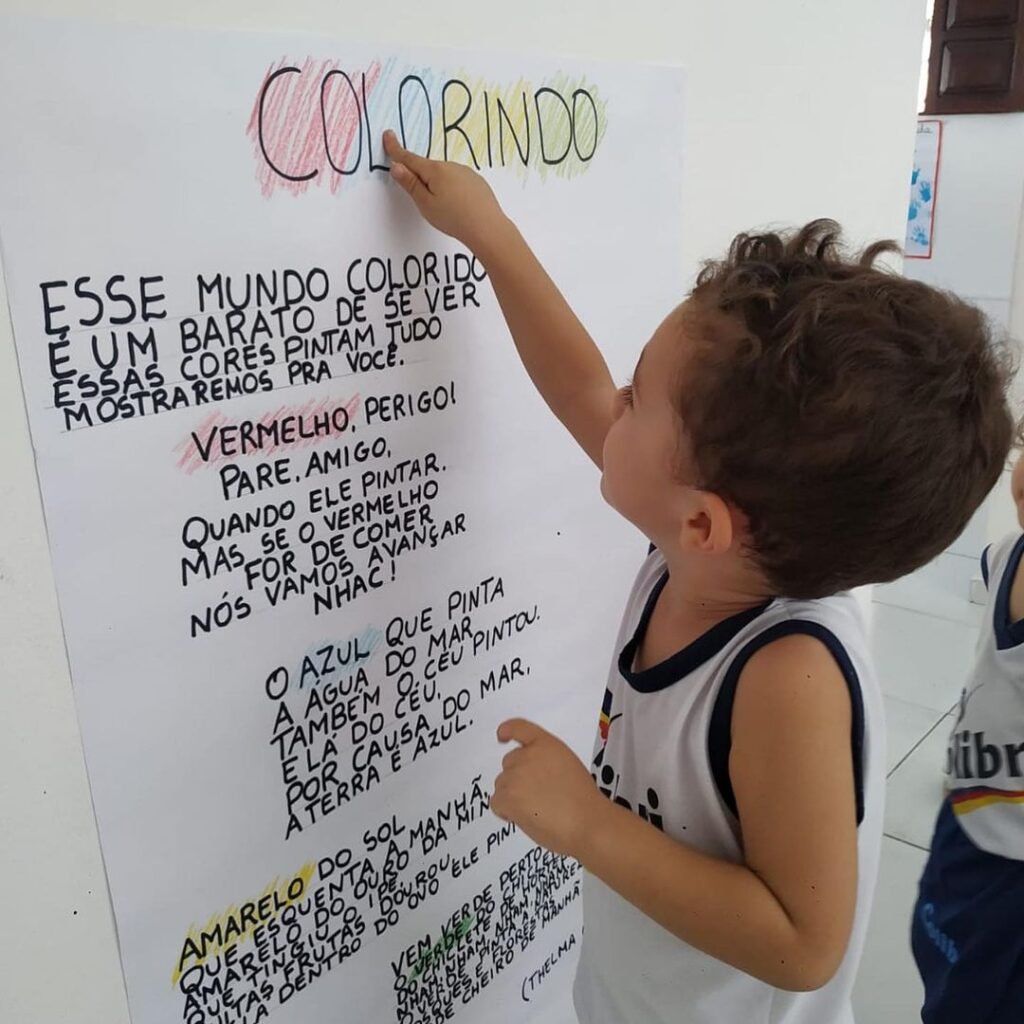 COLORINDO
ESSE MUNDO COLORIDO
É UM BARATO DE SE VER
ESSAS CORES PINTAM TUDO
MOSTRAREMOS PRA VOCÊ.
VERMELHO, PERIGO!
PARE, AMIGO,
QUANDO ELE PINTAR.
MAS SE O VERMELHO
FOR DE COMER
NÓS VAMOS AVANÇAR
NHAC!
O AZUL QUE PINTA
A ÁGUA DO MAR
TAMBÉM O CÉU PINTOU.
E LÁ DO CÉU,
POR CAUSA DO MAR,
A TERRA É AZUL.
AMARELO DO SOL
QUE ESQUENTA A MANHÃ,
AMARELO DO OURO DA
QUE TINGIU O IPÊ
FRUTAS DOUROU
DENTRO DO OVO ELE
VEM VERDE PERTO
VERDE
DO CHICLETE
FLORES
DE CHEIRO DE MANHÃ
(THELMA